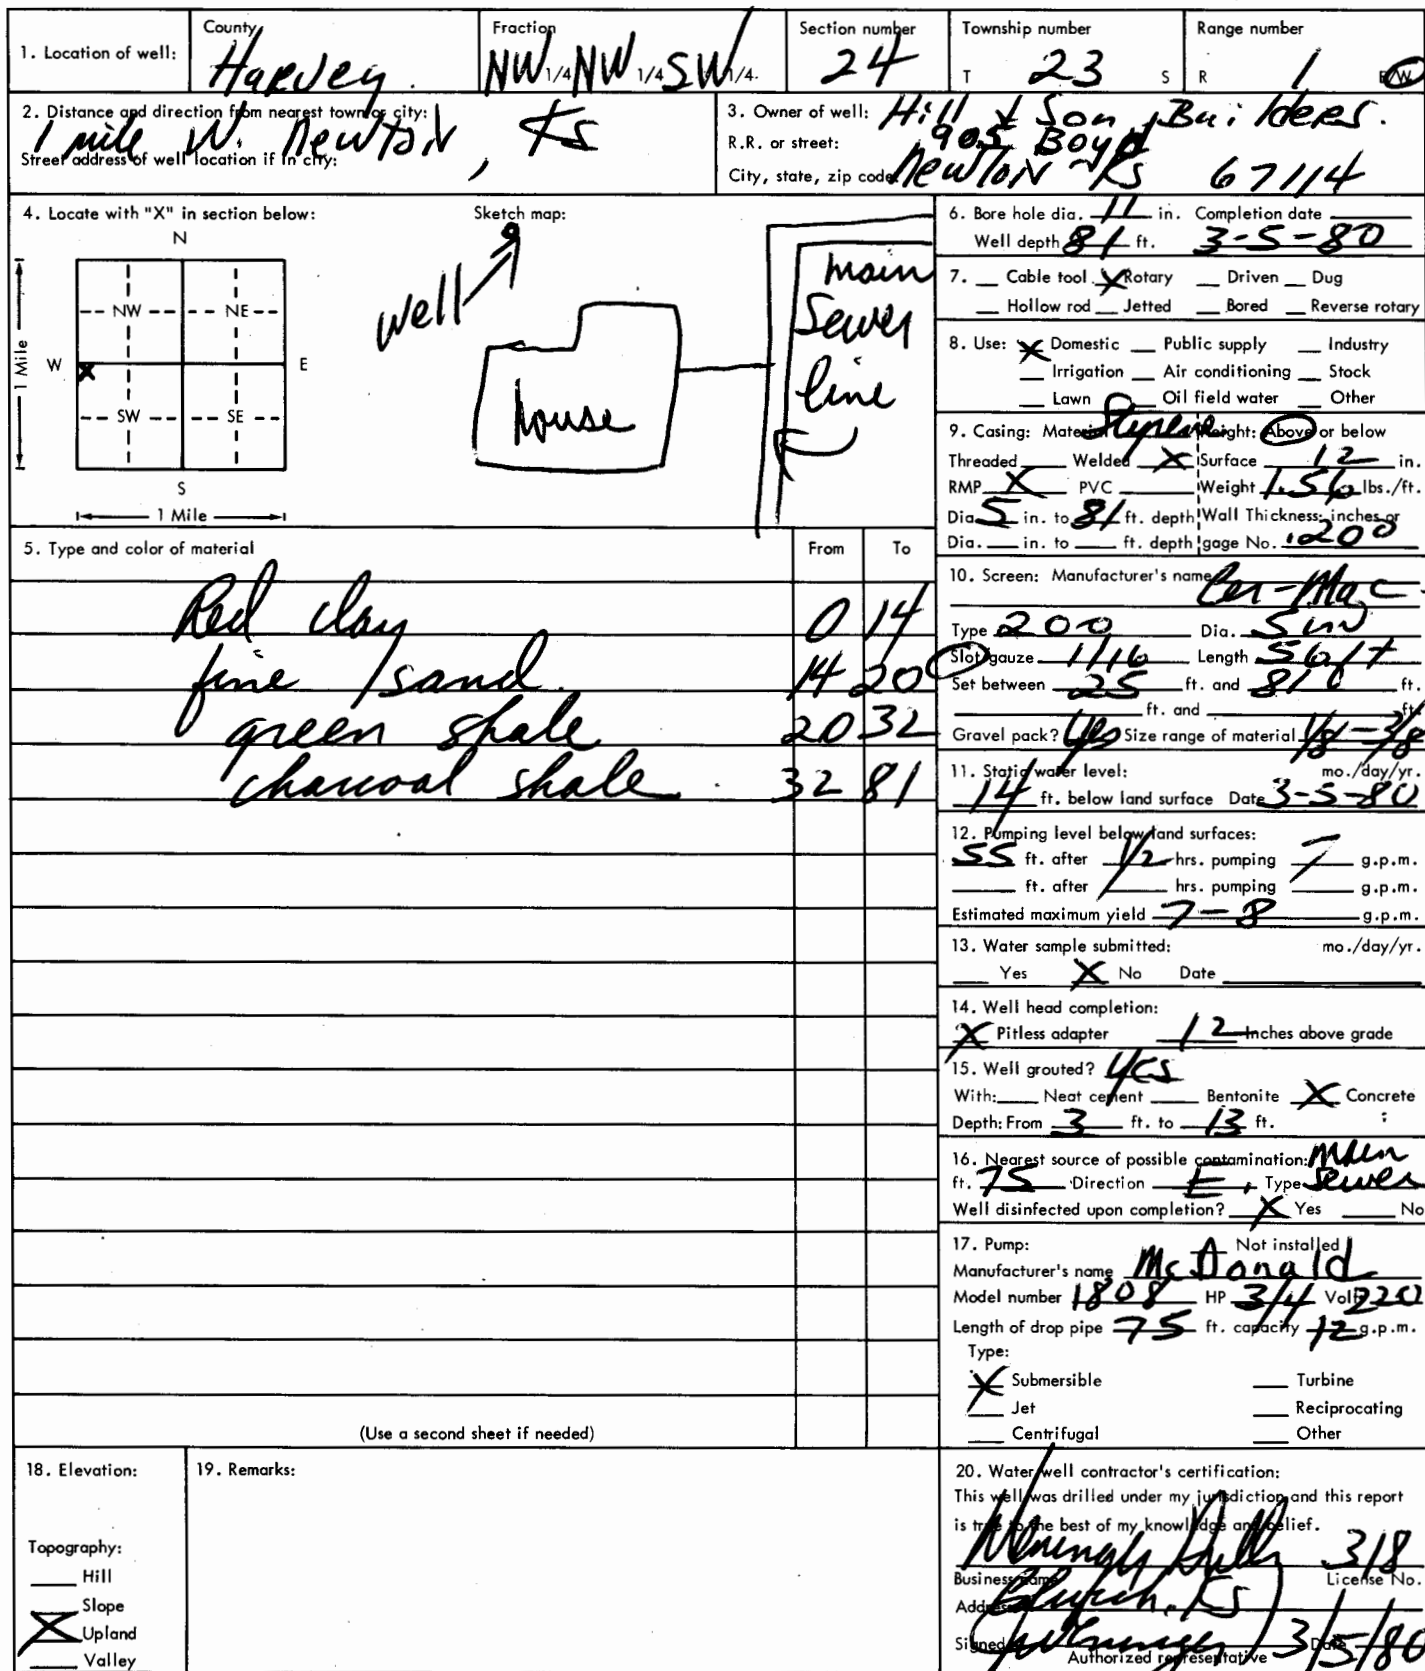 1. Location of well: County Harvey Fraction NW 1/4 NW 1/4 SW 1/4. Section number 24 Township number T 23 S Range number R 1 E/W
2. Distance and direction from nearest town or city: 1 mile W. Newton, Ks
Street address of well location if in city:
3. Owner of well: Hill & Son Builders.
R.R. or street: 905 Boyd
City, state, zip code Newton Ks 67114
4. Locate with "X" in section below:
N
NW NE
W X E
SW SE
S
1 Mile
1 Mile
Sketch map:
well
house
main
Sewer
line
5. Type and color of material From To
Red clay 0 14
fine sand. 14 20
green shale 20 32
charcoal shale 32 81
(Use a second sheet if needed)
6. Bore hole dia. 11 in. Completion date
Well depth 81 ft. 3-5-80
7. Cable tool X Rotary Driven Dug
Hollow rod Jetted Bored Reverse rotary
8. Use: X Domestic Public supply Industry
Irrigation Air conditioning Stock
Lawn Oil field water Other
9. Casing: Material Styrene Height: Above or below
Threaded Welded X Surface 12 in.
RMP X PVC Weight 1.56 lbs./ft.
Dia 5 in. to 81 ft. depth Wall Thickness: inches or
Dia. in. to ft. depth gage No. .200
10. Screen: Manufacturer's name
Type 200 Dia. 5 in
Slot/gauze 1/16 Length 56 ft
Set between 25 ft. and 81 ft.
ft. and ft.
Gravel pack? Yes Size range of material 1/8 - 3/8
11. Static water level: mo./day/yr.
14 ft. below land surface Date 3-5-80
12. Pumping level below land surfaces:
55 ft. after 1/2 hrs. pumping 7 g.p.m.
ft. after hrs. pumping g.p.m.
Estimated maximum yield 7-8 g.p.m.
13. Water sample submitted: mo./day/yr.
Yes X No Date
14. Well head completion:
X Pitless adapter 12 Inches above grade
15. Well grouted? Yes
With: Neat cement Bentonite X Concrete
Depth: From 3 ft. to 13 ft.
16. Nearest source of possible contamination: main
ft. 75 Direction E, Type Sewer
Well disinfected upon completion? X Yes No
17. Pump: Not installed
Manufacturer's name McDonald
Model number 1808 HP 3/4 Volts 220
Length of drop pipe 75 ft. capacity 12 g.p.m.
Type:
X Submersible Turbine
Jet Reciprocating
Centrifugal Other
18. Elevation:
Topography:
Hill
Slope
X Upland
Valley
19. Remarks:
20. Water well contractor's certification:
This well was drilled under my jurisdiction and this report
is true to the best of my knowledge and belief.
318
Business name License No.
Address Ks
Signed Date 3/5/80
Authorized representative